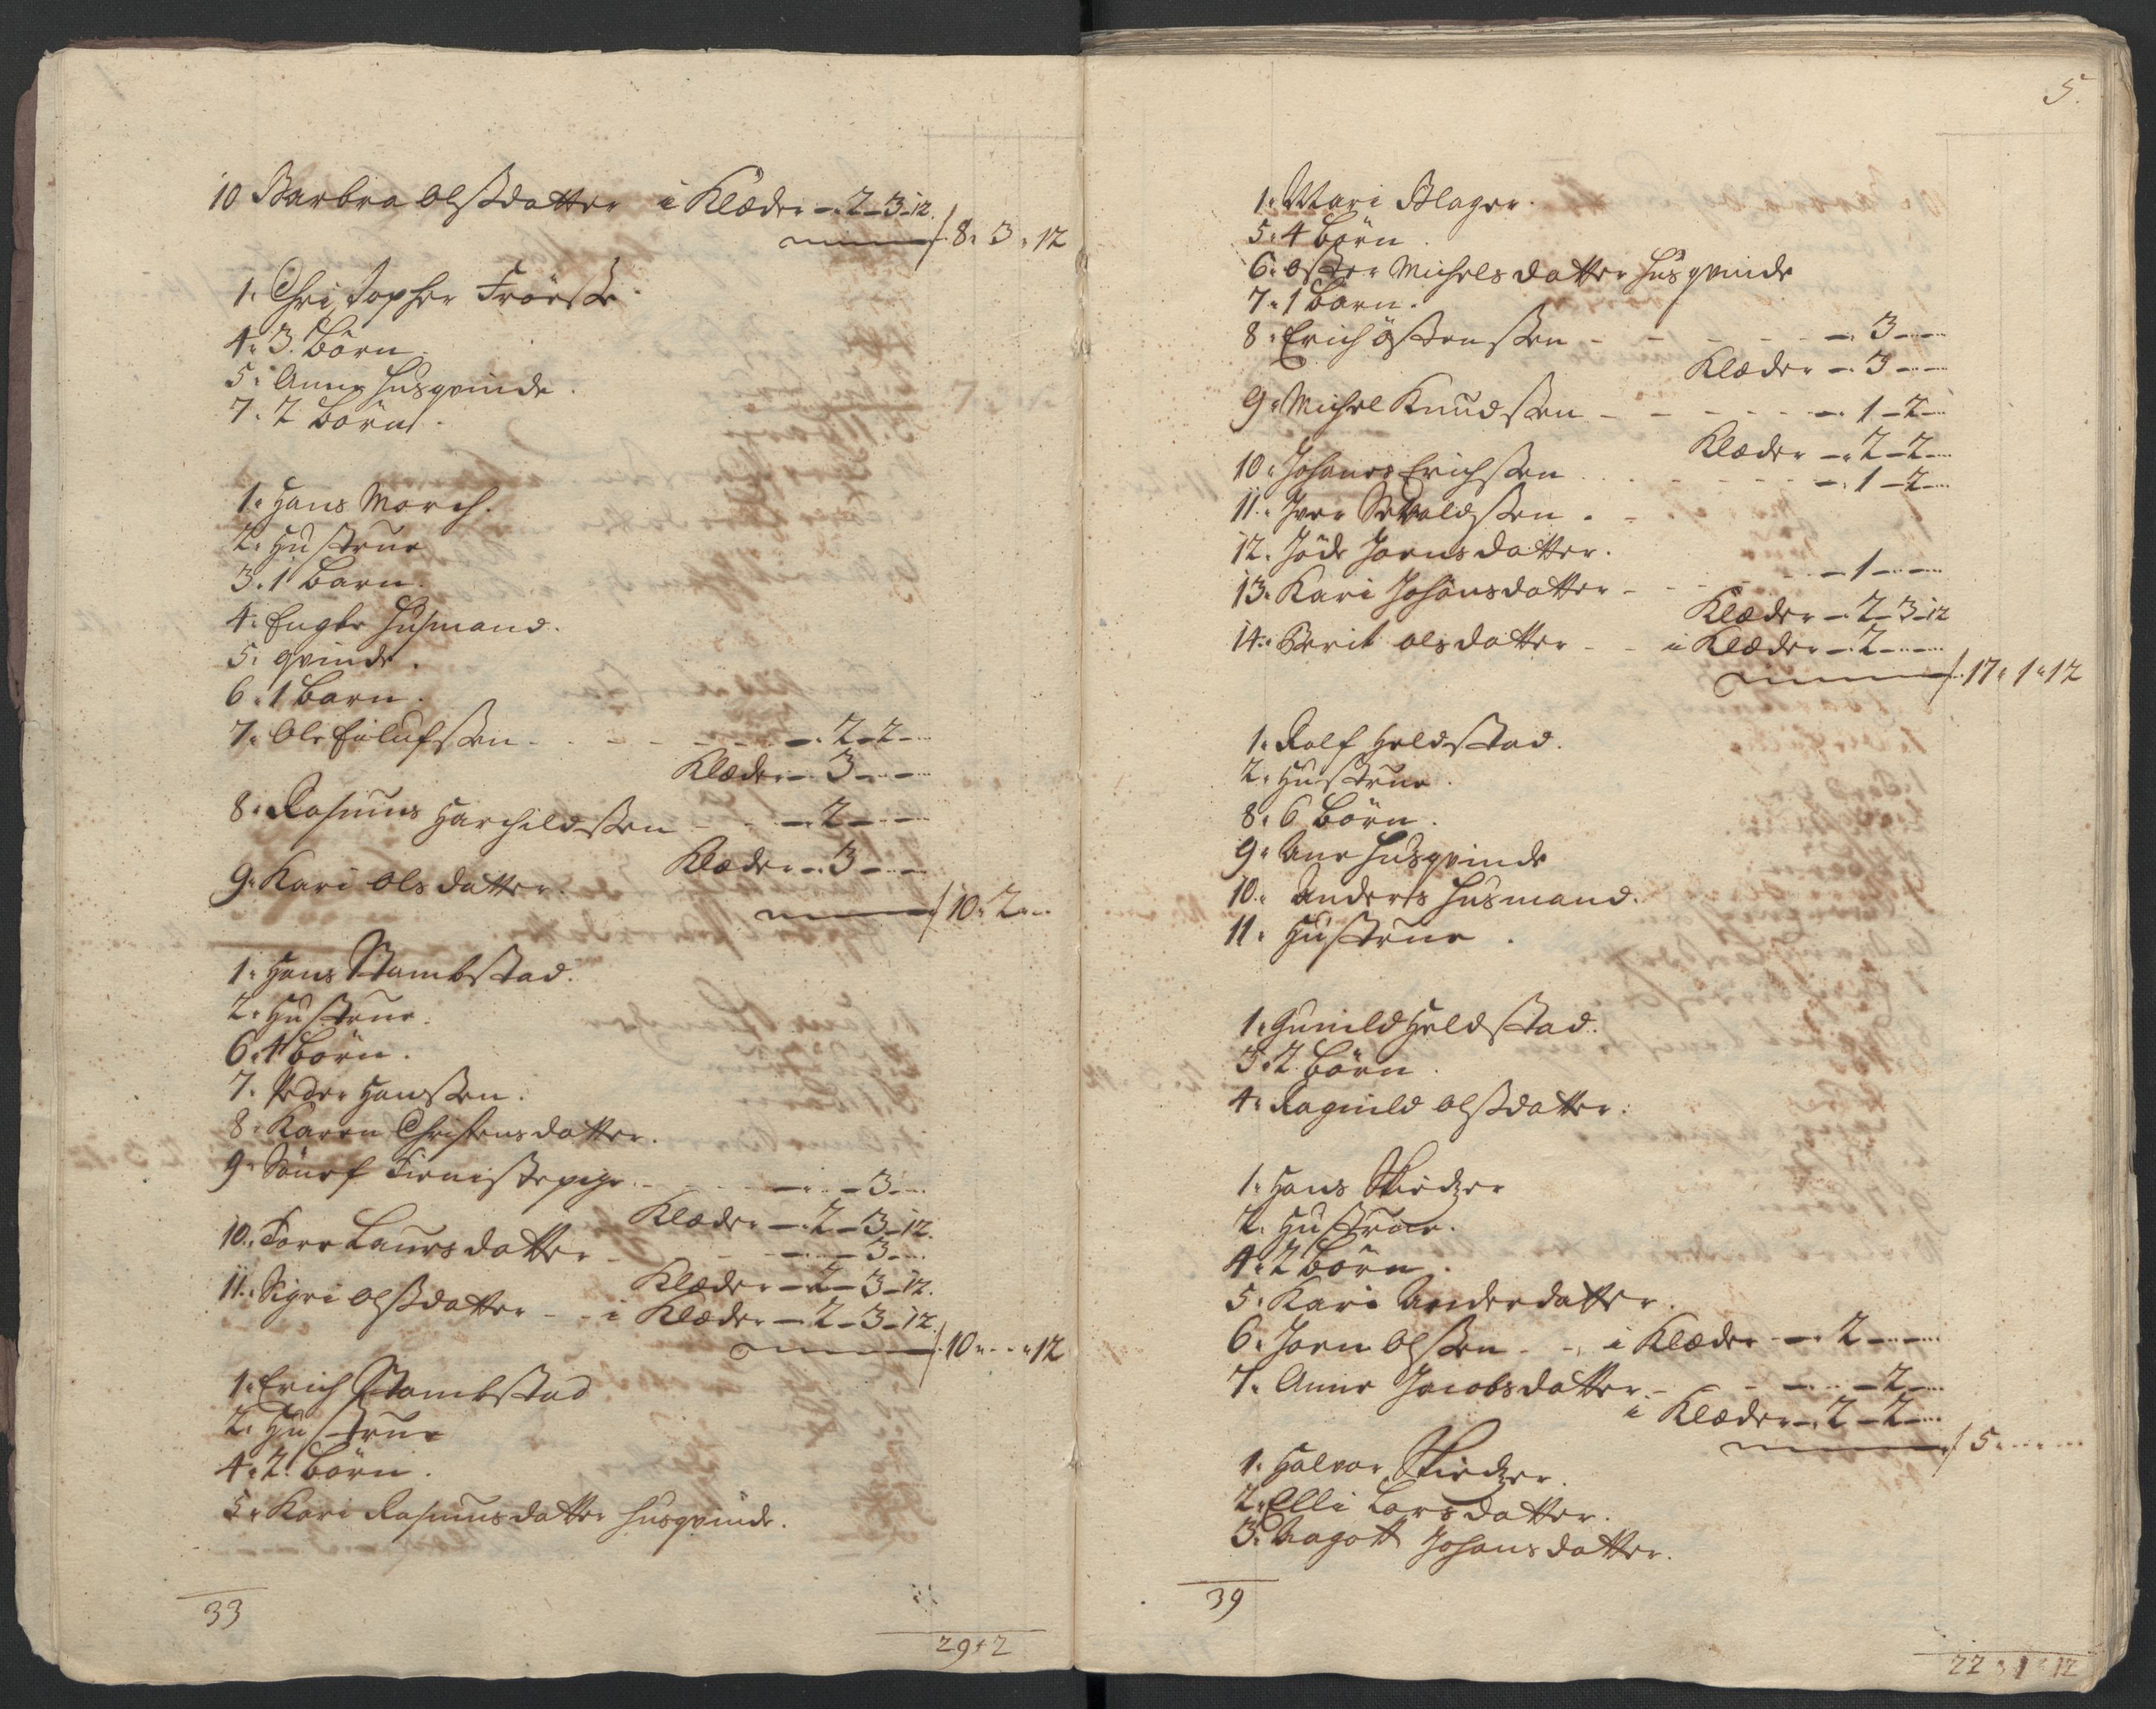 10 Barbra Olsdatter i Klæder - 2 - 3 - 12.
8. 3. 12
1. Christopher Frörste
4. 3. Börn.
5. Anne Husqvinde.
7. 2 Börn.
1. Hans Morch.
2. Hustrue
3. 1 Barn.
4. Engbr Husmand.
5. qvinde.
6. 1 Barn.
7. Ole Eilufssen - - - 2 - 2 -
Klæder - 3 -
8. Rasmus Harchildssen - - 2 -
Klæder - 3 -
9. Kari Olsdatter.
10. 2.
1. Hans Stambstad.
2. Hustrue.
6. 4 Börn.
7. Peder Hanssen.
8. Karen Christensdatter.
9. Tienistepige - - 3 -
Klæder - 2 - 3 - 12.
10. Tore Laursdatter - - 3 -
Klæder - 2 - 3 - 12.
11. Sigri Olsdatter - - i Klæder - 2 - 3 - 12.
10 . . 12
1. Erich Stambstad
2. Hustrue
4. 2. Börn.
5. Kari Rasmusdatter Husqvinde.
33
29 2
5.
1. Mari Blager.
5. 4 Börn
6. Michelsdatter Husqvinde
7. 1 Barn.
8. Erich Östenssen - - - 3 -
Klæder - 3 -
9. Michel Knudssen - - - 1 - 2 -
Klæder - 2 - 2 -
10. Johanes Erichssen - - - 1 - 2 -
11. Iver Sevaldssen.
12. Jöde Joensdatter.
13. Kari Johansdatter - - 1 -
Klæder - 2 - 3 - 12
14. Berit Olsdatter - - i Klæder - 2 -
17. 1. 12
1. Rolf Heldstad.
2. Hustrue.
8. 6 Börn.
9. Ane Husqvinde
10. Anders Husmand.
11. Hustrue.
1. Gunild Heldstad.
3. 2. Börn.
4. Ragnild Olsdatter.
1. Hans Skiedzer
2. Hustrue.
4. 2 Börn.
5. Kari Anderdatter.
6. Joen Olssen - - i Klæder - 2 -
7. Anne Jacobsdatter - - 2 -
i Klæder - 2 - 2 -
5
1. Halvor Skiedzer.
2. Elli Larsdatter.
3. Aagott Johansdatter.
39
22 1 12